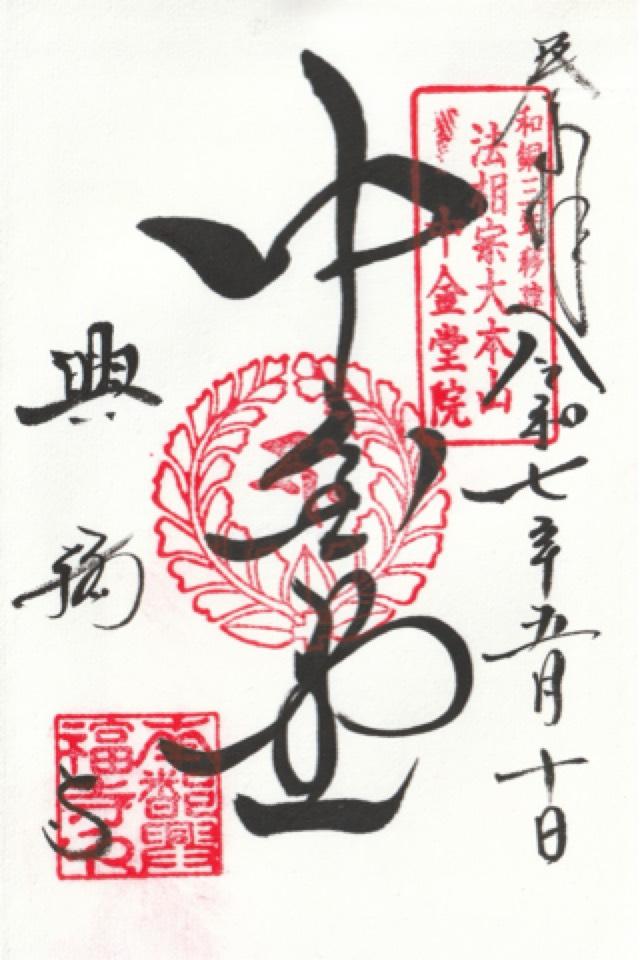 令和七年五月十日
和銅三年移
法相宗大本山
中金堂院
中金堂
興福寺
南都興
福寺印